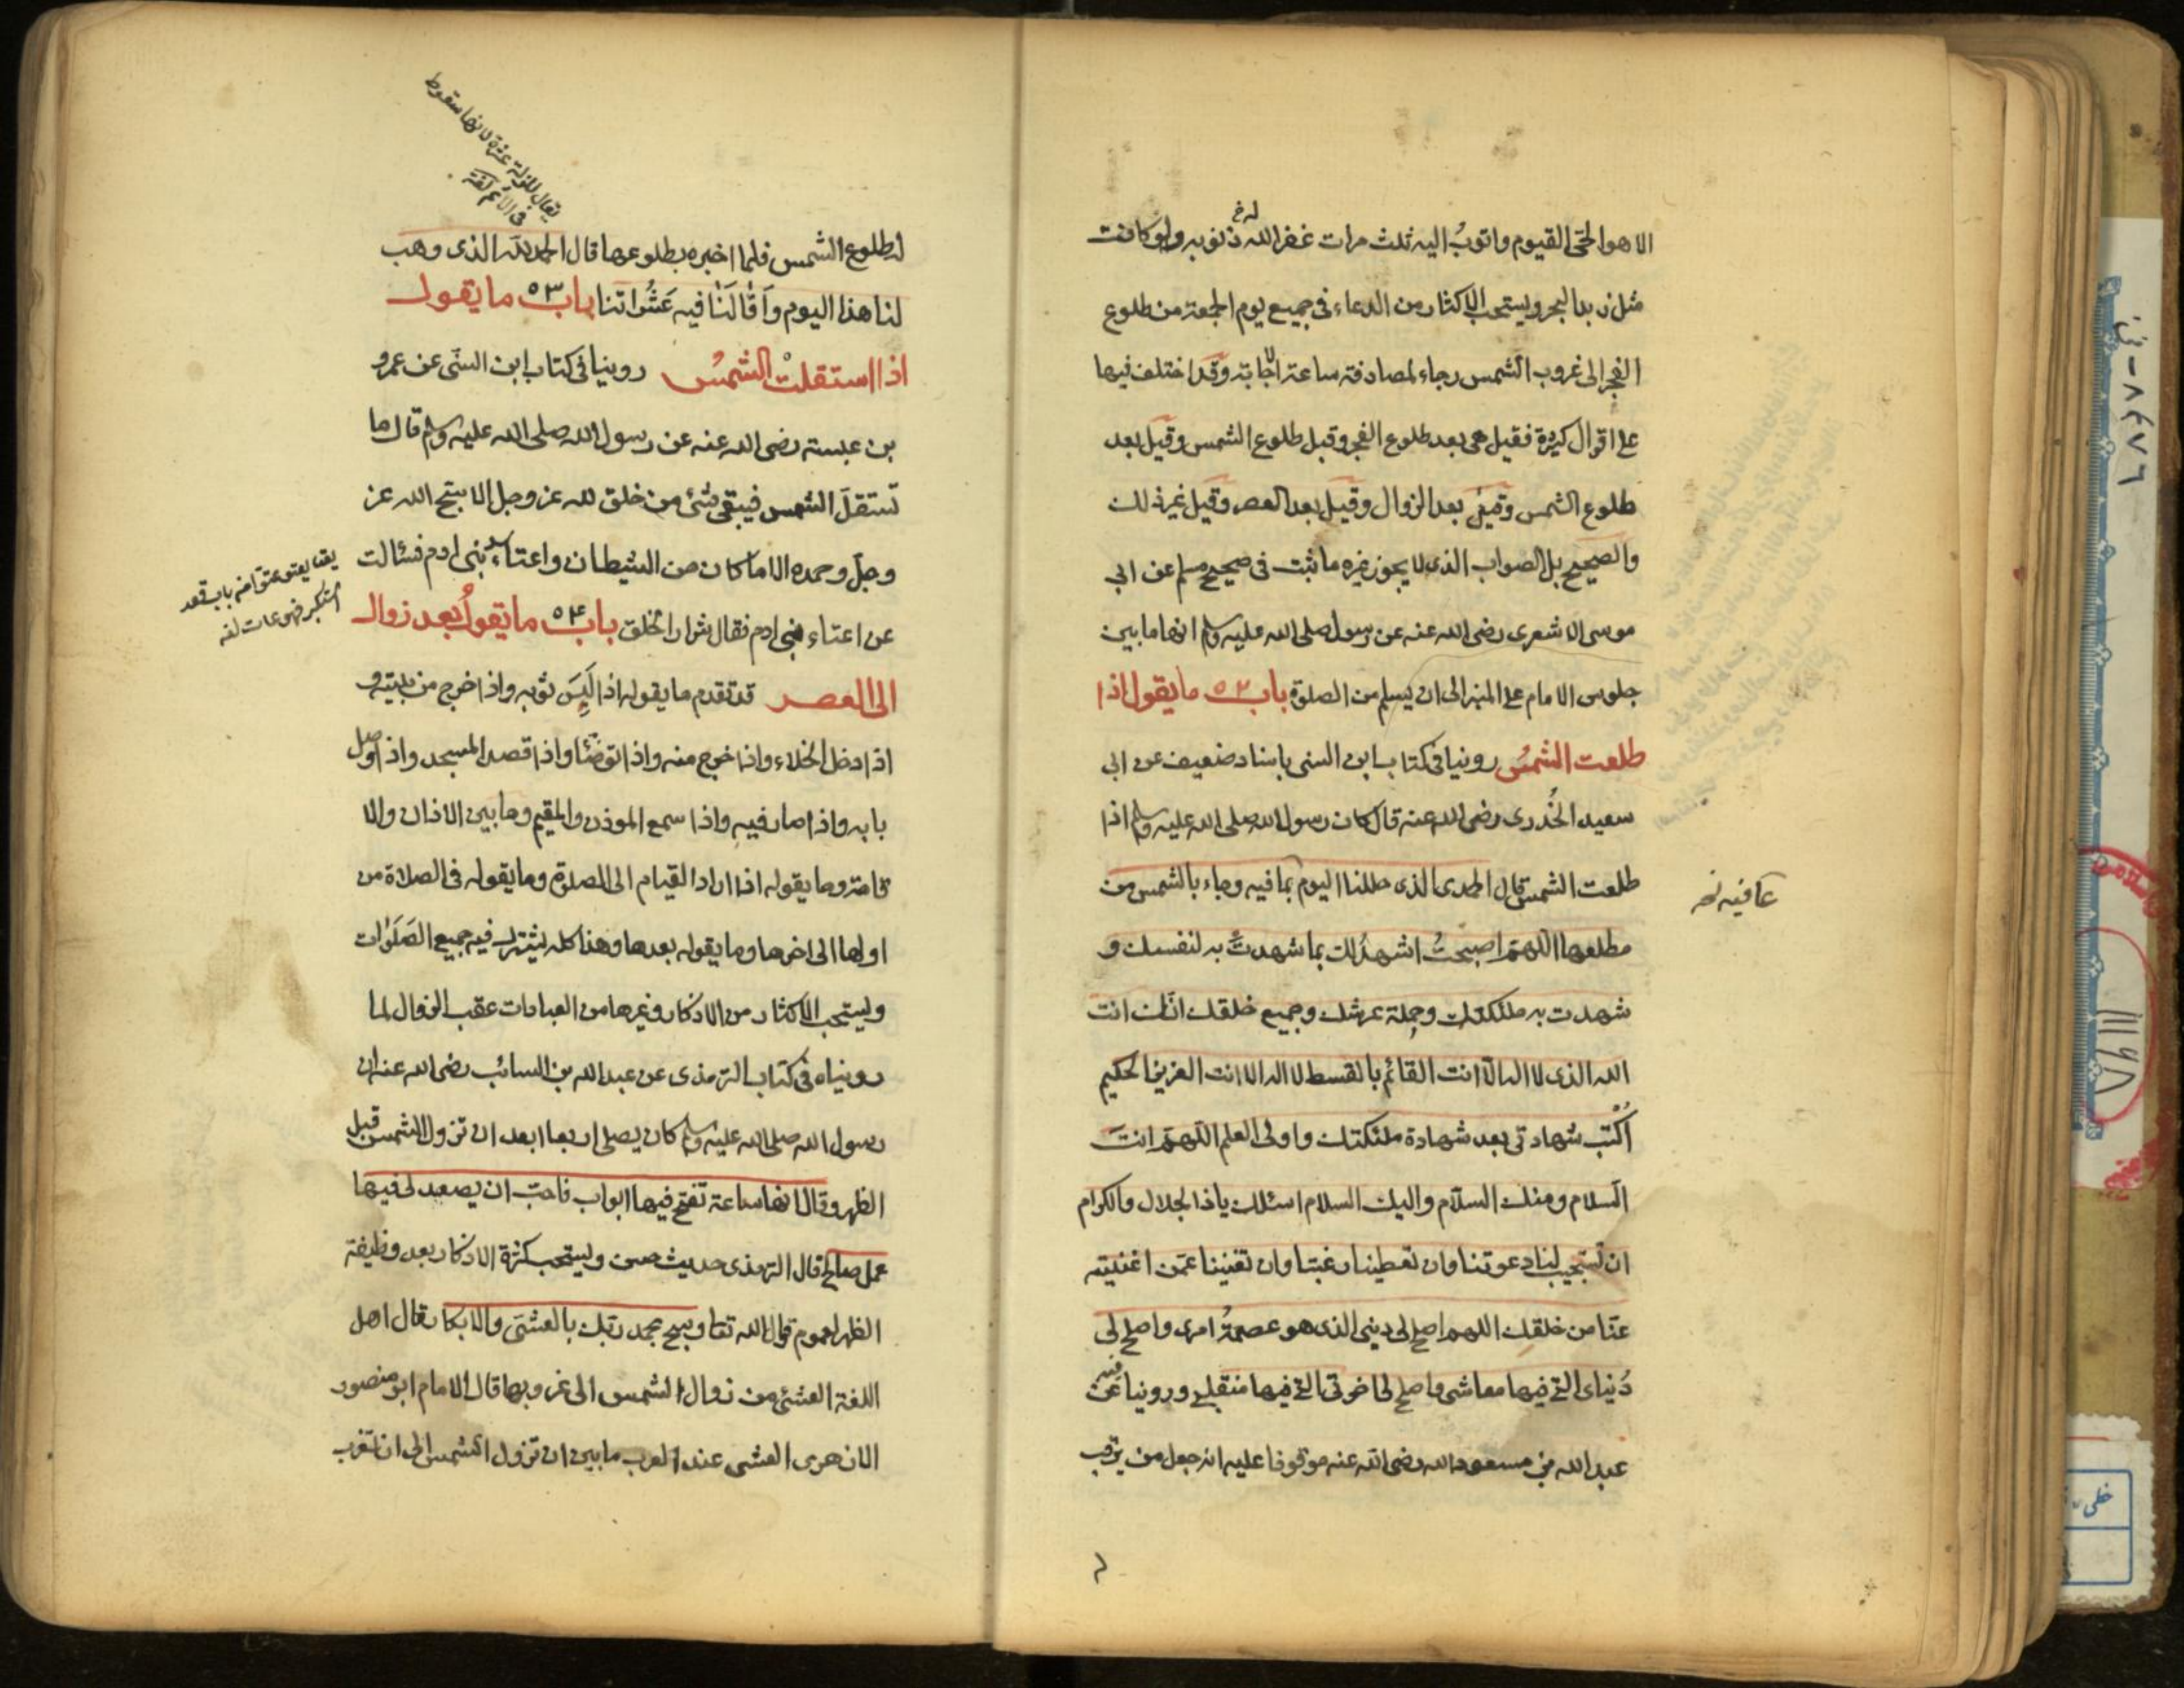 الا هو الحي القيوم واتوبُ اليه ثلث مرات غفر الله ذنوبه ولو كانت
له خ
مثل زبد البحر ويستحب الاكثار من الدعاء في جميع يوم الجمعة من طلوع
الفجر الى غروب الشمس رجاء لمصادفة ساعة الاجابة وقد اختلف فيها
على اقوال كثيرة فقيل هي بعد طلوع الفجر وقبل طلوع الشمس وقيل بعد
طلوع الشمس وقيل بعد الزوال وقيل بعد العصر وقيل غير ذلك
والصحيح بل الصواب الذي لا يجوز غيره ما ثبت في صحيح مسلم عن ابي
موسى الاشعري رضى الله عنه عن رسول الله صلى الله عليه وسلم انها ما بين
جلوس الامام على المنبر الى ان يسلم من الصلوة باب ٥٢ ما يقول اذا
طلعت الشمسُ روينا في كتاب ابن السني باسناد ضعيف عن ابي
سعيد الخُدرى رضى الله عنه قال كان رسول الله صلى الله عليه وسلم اذا
طلعت الشمس قال الحمد لله الذى جللنا اليوم بما فيه وجاء بالشمس من
عافيته نخ
مطلعها اللهمّ اصبحتُ اشهدُ لك بما شهدتَ به لنفسك و
شهدت به ملئكتك وحملة عرشك وجميع خلقك انّك انت
الله الذى لا اله الّا انت القائم بالقسط لا اله الا انت العزيز الحكيم
اُكْتب شهادتى بعد شهادة ملئكتك واولى العلم اللهمّ انتَ
السّلام ومنك السّلام واليك السلام اسئلك ياذا الجلال والاكرام
ان تستجيب لنا دعوتنا وان تعطينا رغبتنا وان تغنينا عمّن اغنيته
عنّا من خلقك اللهم اصلح لى دينى الذى هو عصمةُ امرى واصلح لى
دُنياى التى فيها معاشى واصلح لى اخرتى التى فيها منقلبى وروينا عن
فيه
عبد الله بن مسعود رضى الله عنه موقوفا عليه انه جعل من يرقب
له طلوع الشمس فلما اخبره بطلوعها قال الحمد لله الذى وهب
يقال للزلة عثرة لانها سقوط
فى الاثم لغة
لنا هذا اليوم وَاَقَالَنَا فيه عَثَراتنا باب ٥٣ ما يقول
اذا استقلتْ الشمسُ روينا في كتاب ابن السنّى عن عمرو
بن عبسة رضى الله عنه عن رسول الله صلى الله عليه وسلم قال ما
تستقلّ الشمس فيبقى شئ من خلق الله عز وجل الا سبّح الله عز
وجلّ وحمده الا ما كان من الشيطان واعتاء بنى ادم فسالت
عن اعتاء بنى ادم فقال شرار الخلق باب ٥٤ ما يقولُ بعد زوال
يقا يعتو عتوا من باب قعد
استكبر فهو عات لغه
الى العصر قد تقدم ما يقوله اذا لَبِسَ ثوبه واذا خرج من بيته و
اذا دخل الخلاء واذا خرج منه واذا توضّأ واذا قصد المسجد واذا وصل
بابه واذا صار فيه واذا سمع الموذن والمقيم وما بين الاذان والا
قامة وما يقوله اذا اراد القيام الى الصلوة وما يقوله فى الصلاة من
اولها الى اخرها وما يقوله بعدها وهذا كله يشترك فيه جميع الصَلَوٰات
ويستحب الاكثار من الاذكار وغيرها من العبادات عقب الزوال لما
رويناه فى كتاب الترمذى عن عبد الله بن السائب رضى الله عنه ان
رسول الله صلى الله عليه وسلم كان يصلى اربعا بعد ان تزول الشمس قبل
الظهر وقال انها ساعة تفتح فيها ابواب فاحبّ ان يصعد لى فيها
عمل صالح قال الترمذى حديث حسن ويستحب كثرة الاذكار بعد وظيفة
الظهر لعموم قول الله تعا وسبح بحمد ربك بالعشىّ والابكار قال اهل
اللغة العشىّ من زوال الشمس الى غروبها قال الامام ابو منصور
الازهرى العشى عند العرب ما بين ان تزول الشمس الى ان تغرب